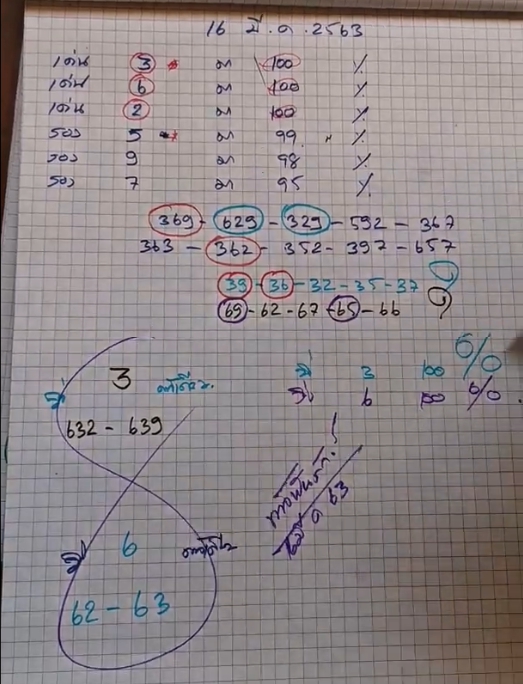 16 มี.ค.2563
เด่น 3 มา 100 %
เด่น 6 มา 100 %
เด่น 2 มา 100 %
รอง 5 มา 99 %
รอง 9 มา 98 %
รอง 7 มา 95 %
369 - 629 - 329 - 592 - 367
363 - 362 - 352 - 397 - 657
39 - 36 - 32 - 35 - 37
69 - 62 - 67 - 65 - 66
3
632 - 639
3 100 %
6 100 %
6
62 - 63
63